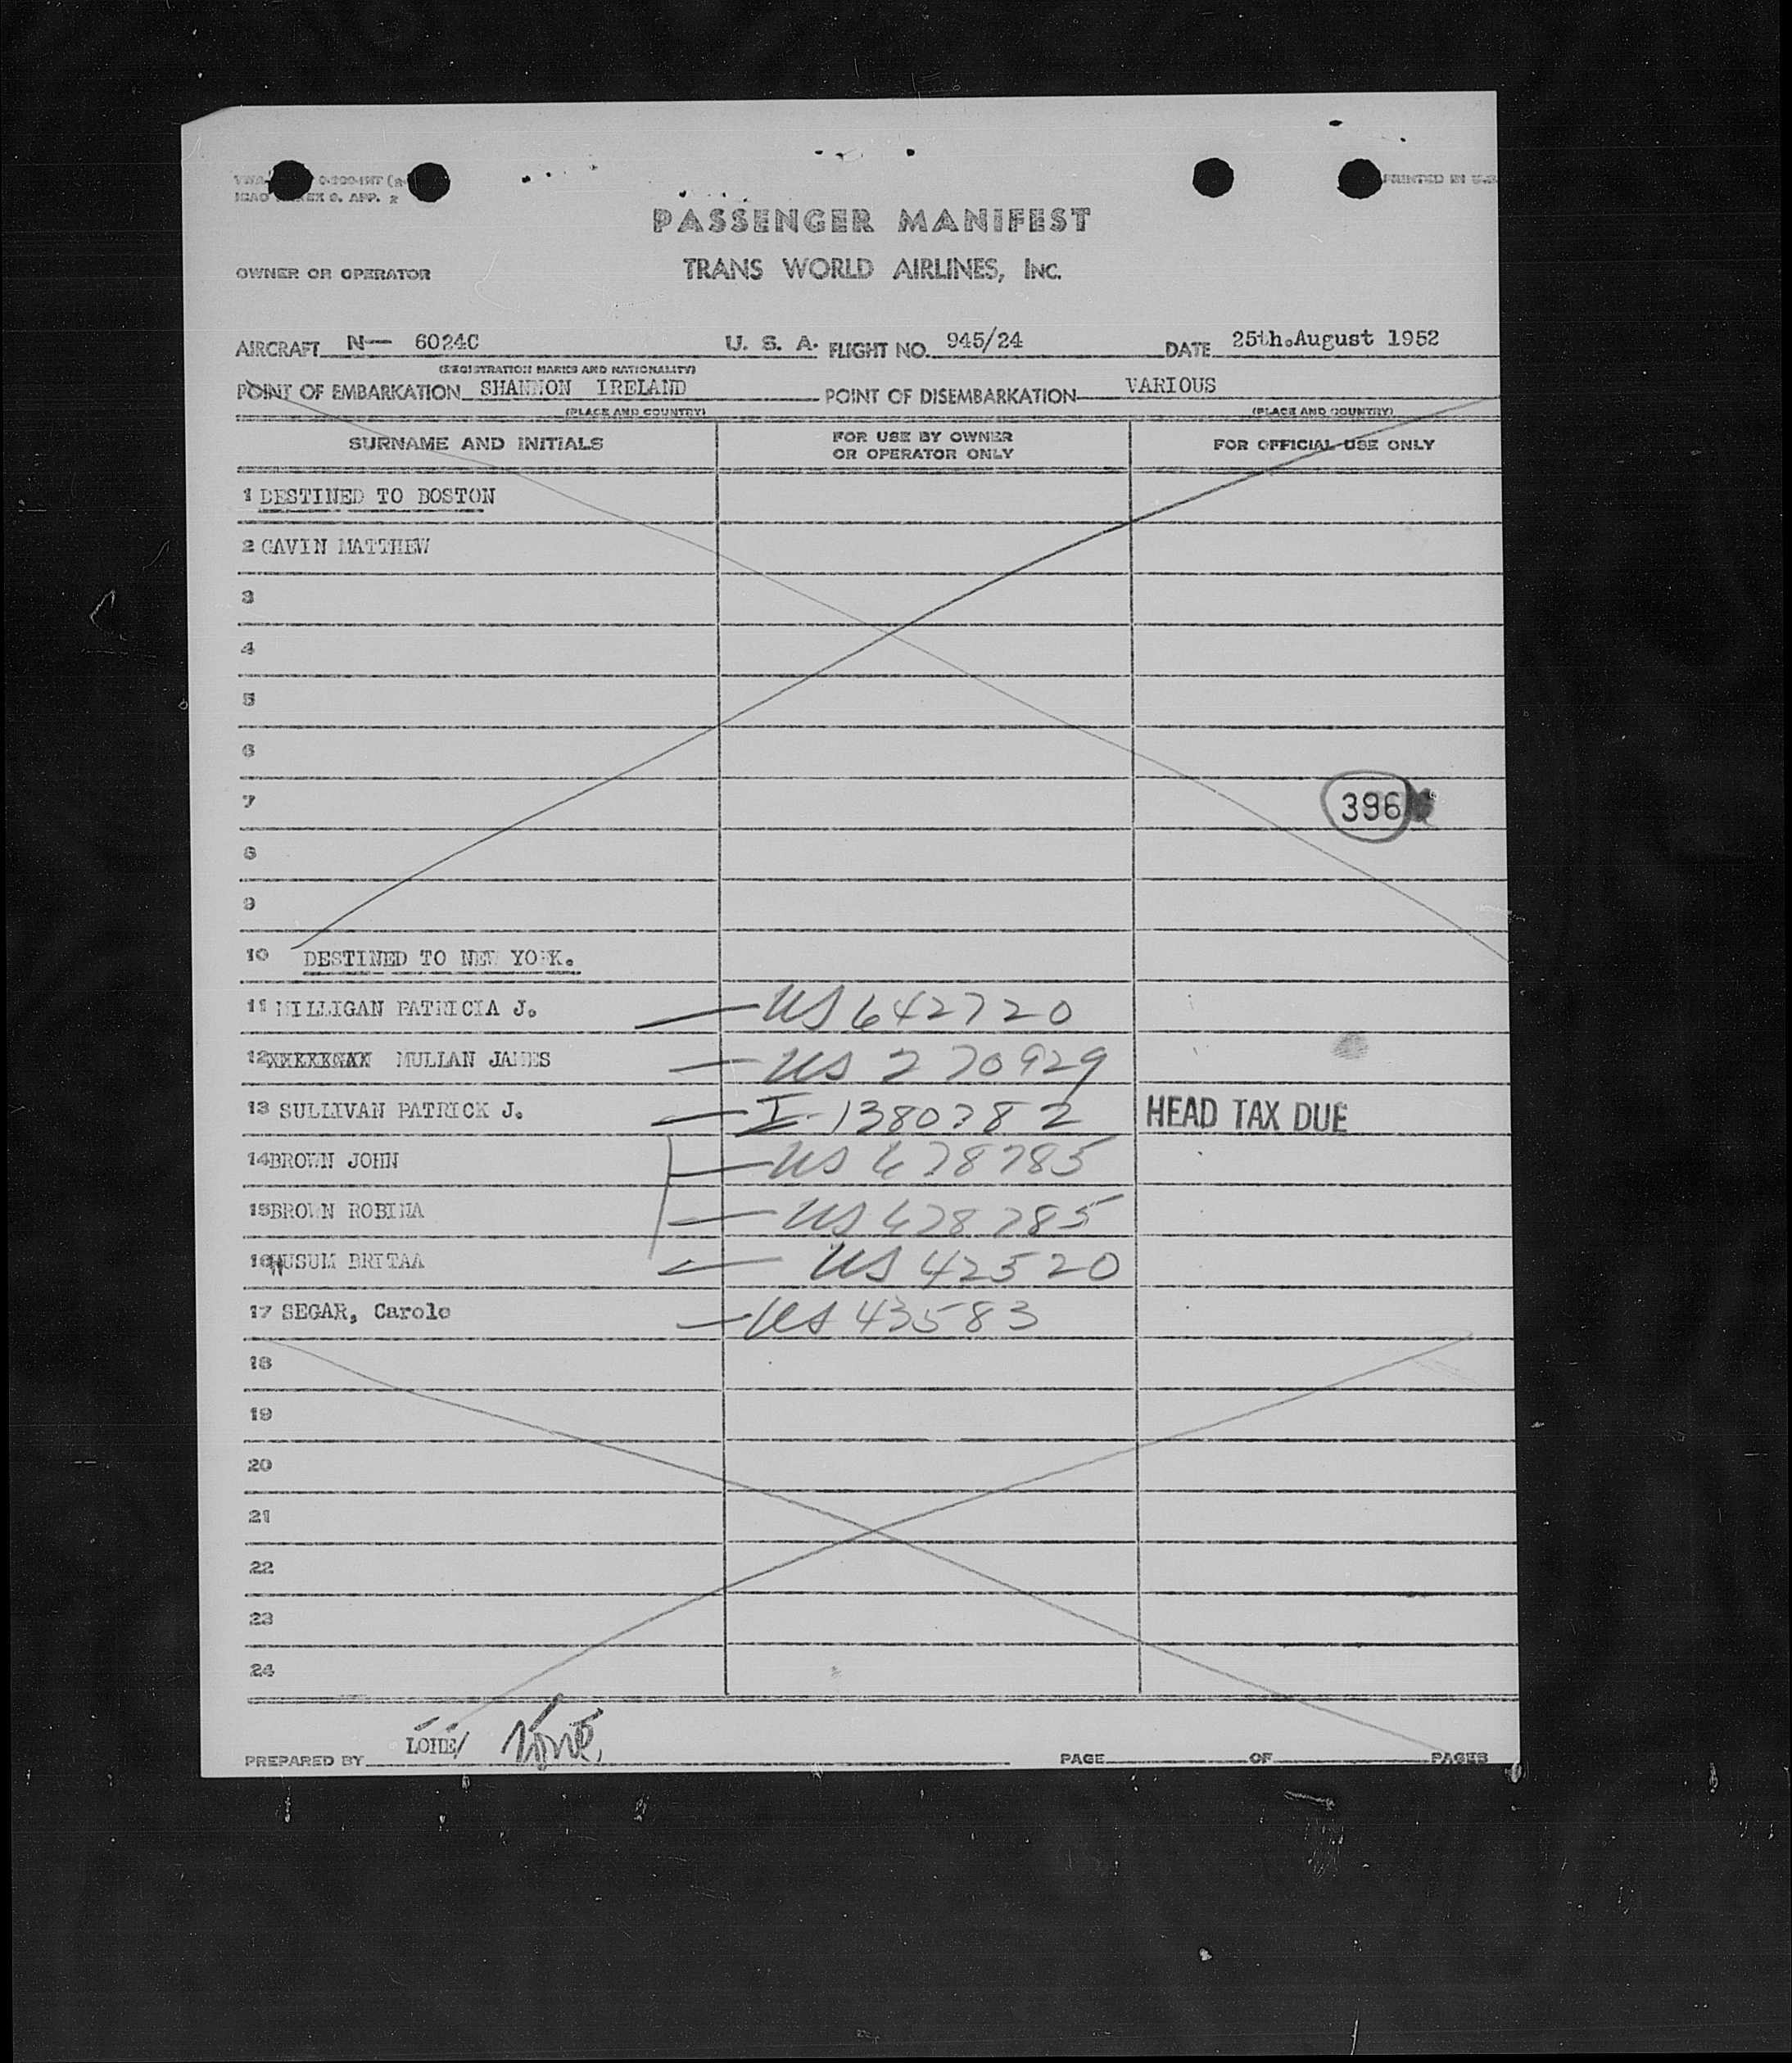 ICAO ANNEX 9, APP. 2
PRINTED IN U.S.
PASSENGER MANIFEST
OWNER OR OPERATOR TRANS WORLD AIRLINES, INC.
AIRCRAFT N— 6024C U. S. A. FLIGHT NO. 945/24 DATE 25th.August 1952
(REGISTRATION MARKS AND NATIONALITY)
POINT OF EMBARKATION SHANNON IRELAND POINT OF DISEMBARKATION VARIOUS
(PLACE AND COUNTRY) (PLACE AND COUNTRY)
SURNAME AND INITIALS FOR USE BY OWNER OR OPERATOR ONLY FOR OFFICIAL USE ONLY
1 DESTINED TO BOSTON
2 GAVIN MATTHEW
3
4
5
6
7 396
8
9
10 DESTINED TO NEW YORK.
11 MILLIGAN PATRICIA J. — US 642720
12 MULLAN JAMES — US 270929
13 SULLIVAN PATRICK J. — I-1380782 HEAD TAX DUE
14 BROWN JOHN — US 678785
15 BROWN ROBINA — US 678785
16 HUSUM BRITAA — US 42520
17 SEGAR, Carole — US 43583
18
19
20
21
22
23
24
PREPARED BY LOHE/ PAGE OF PAGES